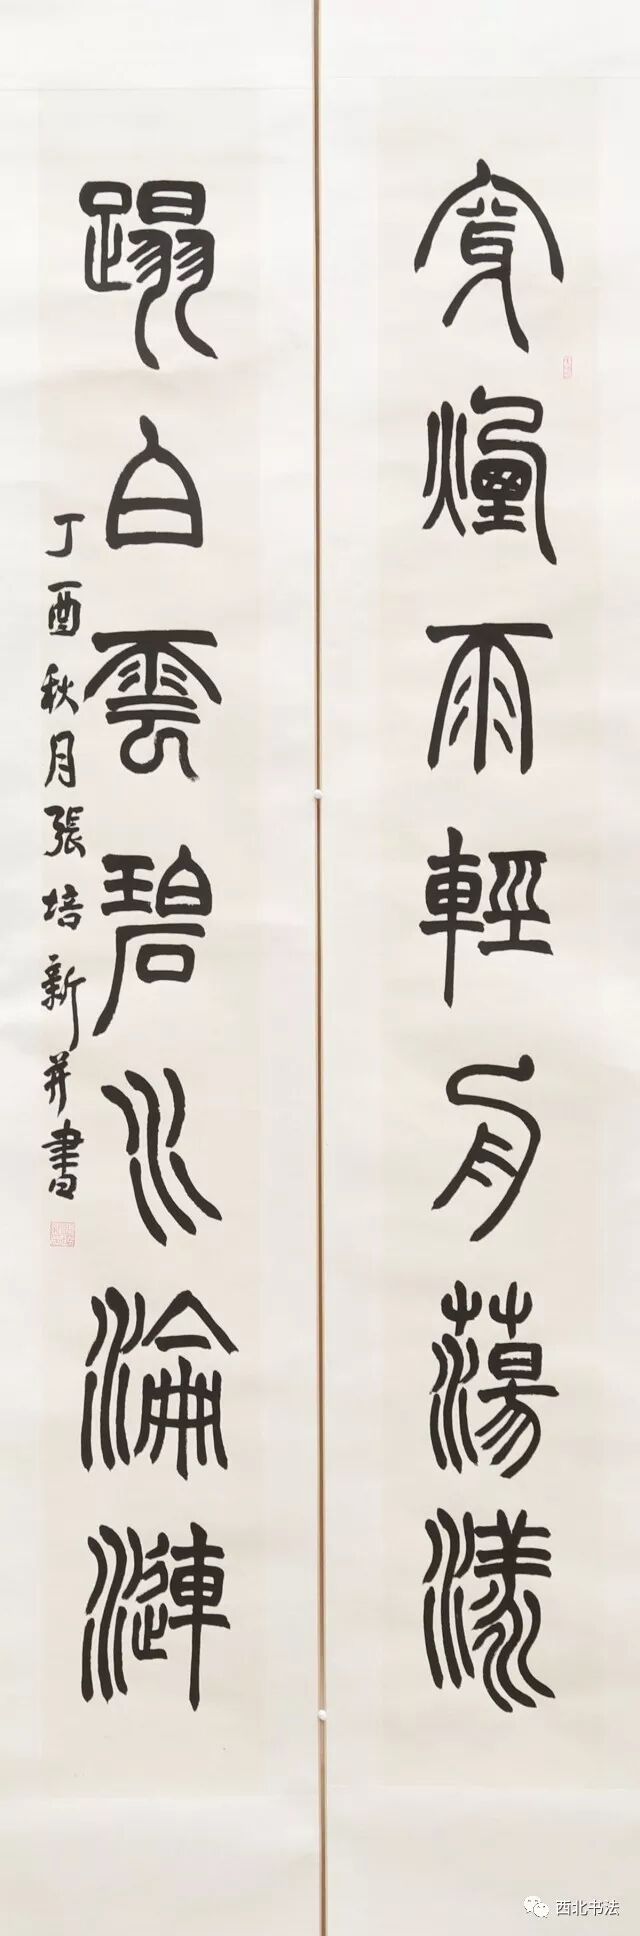 穿煙雨輕舟蕩漾
蹋白雲碧水淪漣
丁酉秋月張培新并書
西北书法